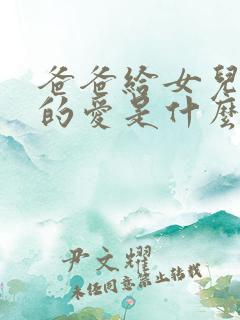 爸爸給女兒
的愛是什麼
尹文耀
未經同意禁止轉載